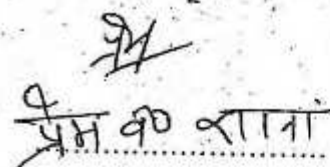 प्रेम
प्रेम ब० राना